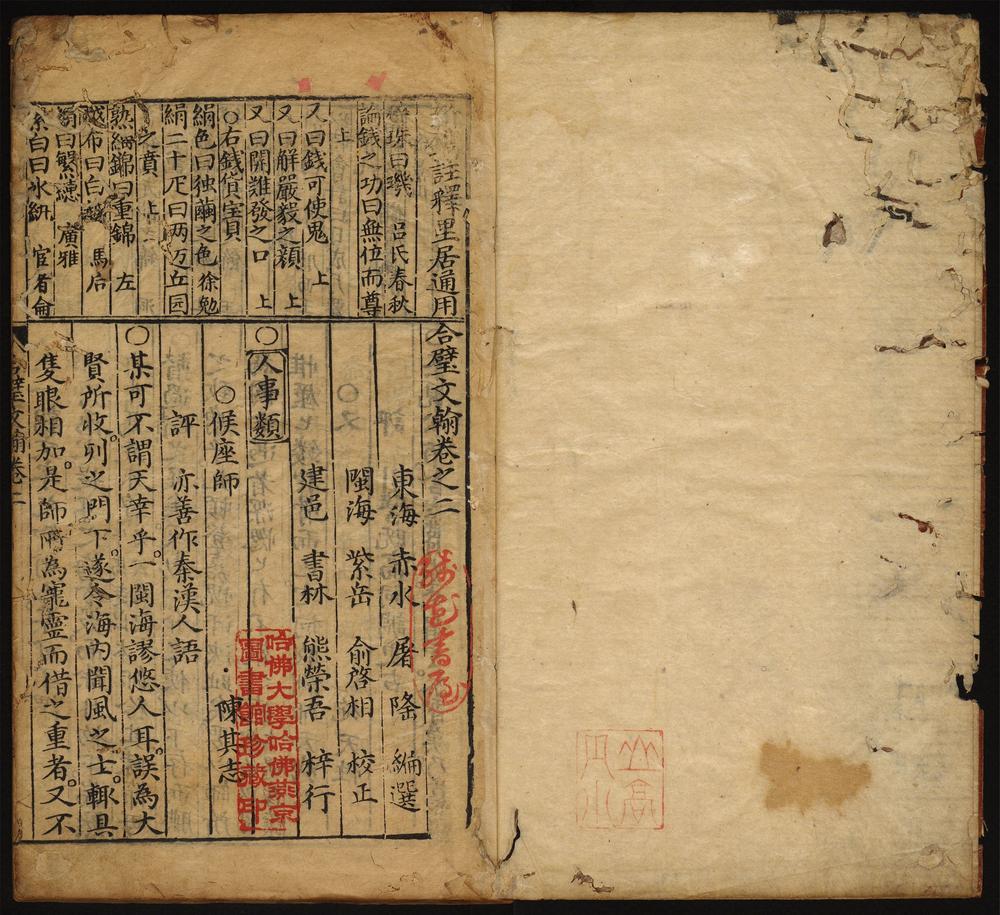 註釋里居通用
珠曰璣 呂氏春秋
論錢之功曰無位而尊
上
又曰錢可使鬼 上
又曰解嚴毅之顏 上
又曰開難發之口 上
○右錢貨宝貝
絹色曰独繭之色 徐勉
絹二十疋曰两 丘园
之賁 上
熟細錦曰重錦 左
越布曰白 馬后
絹曰繁總 廣雅
素白曰氷紈 宦者倫
合璧文翰卷之二
東海 赤水 屠隆 編選
閩海 紫岳 俞啓相 校正
建邑 書林 熊榮吾 梓行
○人事類
○候座師 陳其志
評 亦善作秦漢人語
○某可不謂天幸乎。一閩海謬悠人耳。誤為大
賢所收列之門下。遂令海内聞風之士。輙具
隻眼相加。是師所為寵靈而借之重者。又不
合璧文翰卷二
哈佛大學哈佛燕京
圖書館珍藏印
書屋